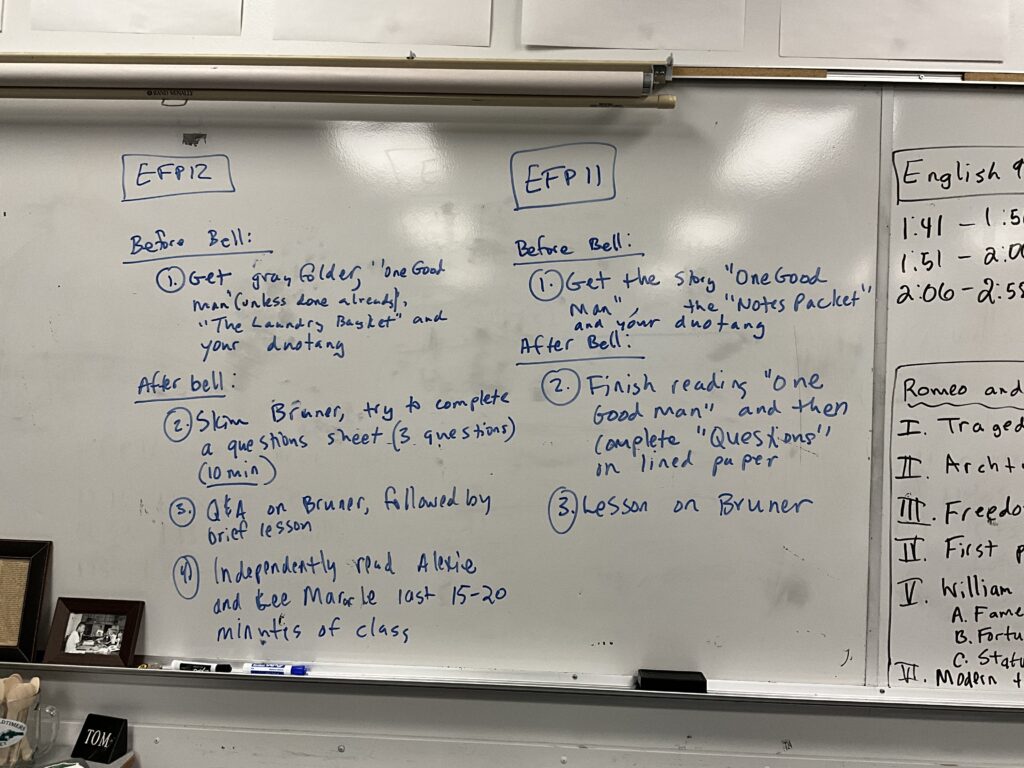 RAND McNALLY
EFP12
Before Bell:
1. Get gray folder, "One Good
man" (unless done already),
"The Laundry Basket" and
your duotang
After bell:
2. Skim Bruner, try to complete
a questions sheet (3 questions)
(10 min)
3. Q&A on Bruner, followed by
brief lesson
4) Independently read Alexie
and Lee Maracle last 15-20
minutes of class
EFP 11
Before Bell:
1. Get the story "One Good
Man", the "Notes Packet"
and your duotang
After Bell:
2. Finish reading "One
Good Man" and then
complete "Questions"
on lined paper
3. Lesson on Bruner
English 9
1:41 - 1:5
1:51 - 2:0
2:06 - 2:5
Romeo and
I. Traged
II. Archt
III. Freedo
IV. First p
V. William
A. Fame
B. Fortu
C. Statu
VI. Modern t
TOM